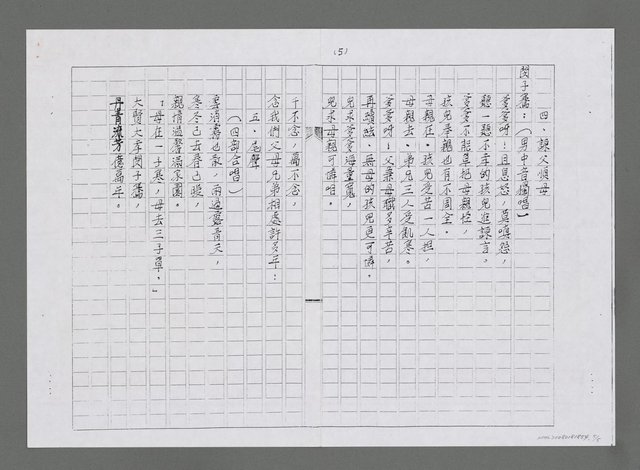 (5)
四、諫父憤母
閔子騫:(男中音獨唱)
爹爹呀!且息怒,莫嗔怨,
聽一聽不幸的孩兒進諫言。
爹爹不能草草把母親拉,
孩兒奉親也有不周全。
母親在,孩兒受苦一人擔,
母親去,弟兄三人受飢寒。
爹爹呀!父兼母職多辛苦,
再續絃,無母的孩兒更可憐。
兒求爹爹海量寬,
兒求母親可憐唱。
千不念,萬不念,
念我們父母兄弟相處許多年:
五、尾聲
(四部合唱)
雲消霧也散,雨過露青天,
寒冬已去春已暖,
親情溫馨滿家園。
「母在一子寒,母去三子單。」
大賢大孝閔子騫,
丹青流芳應萬年。